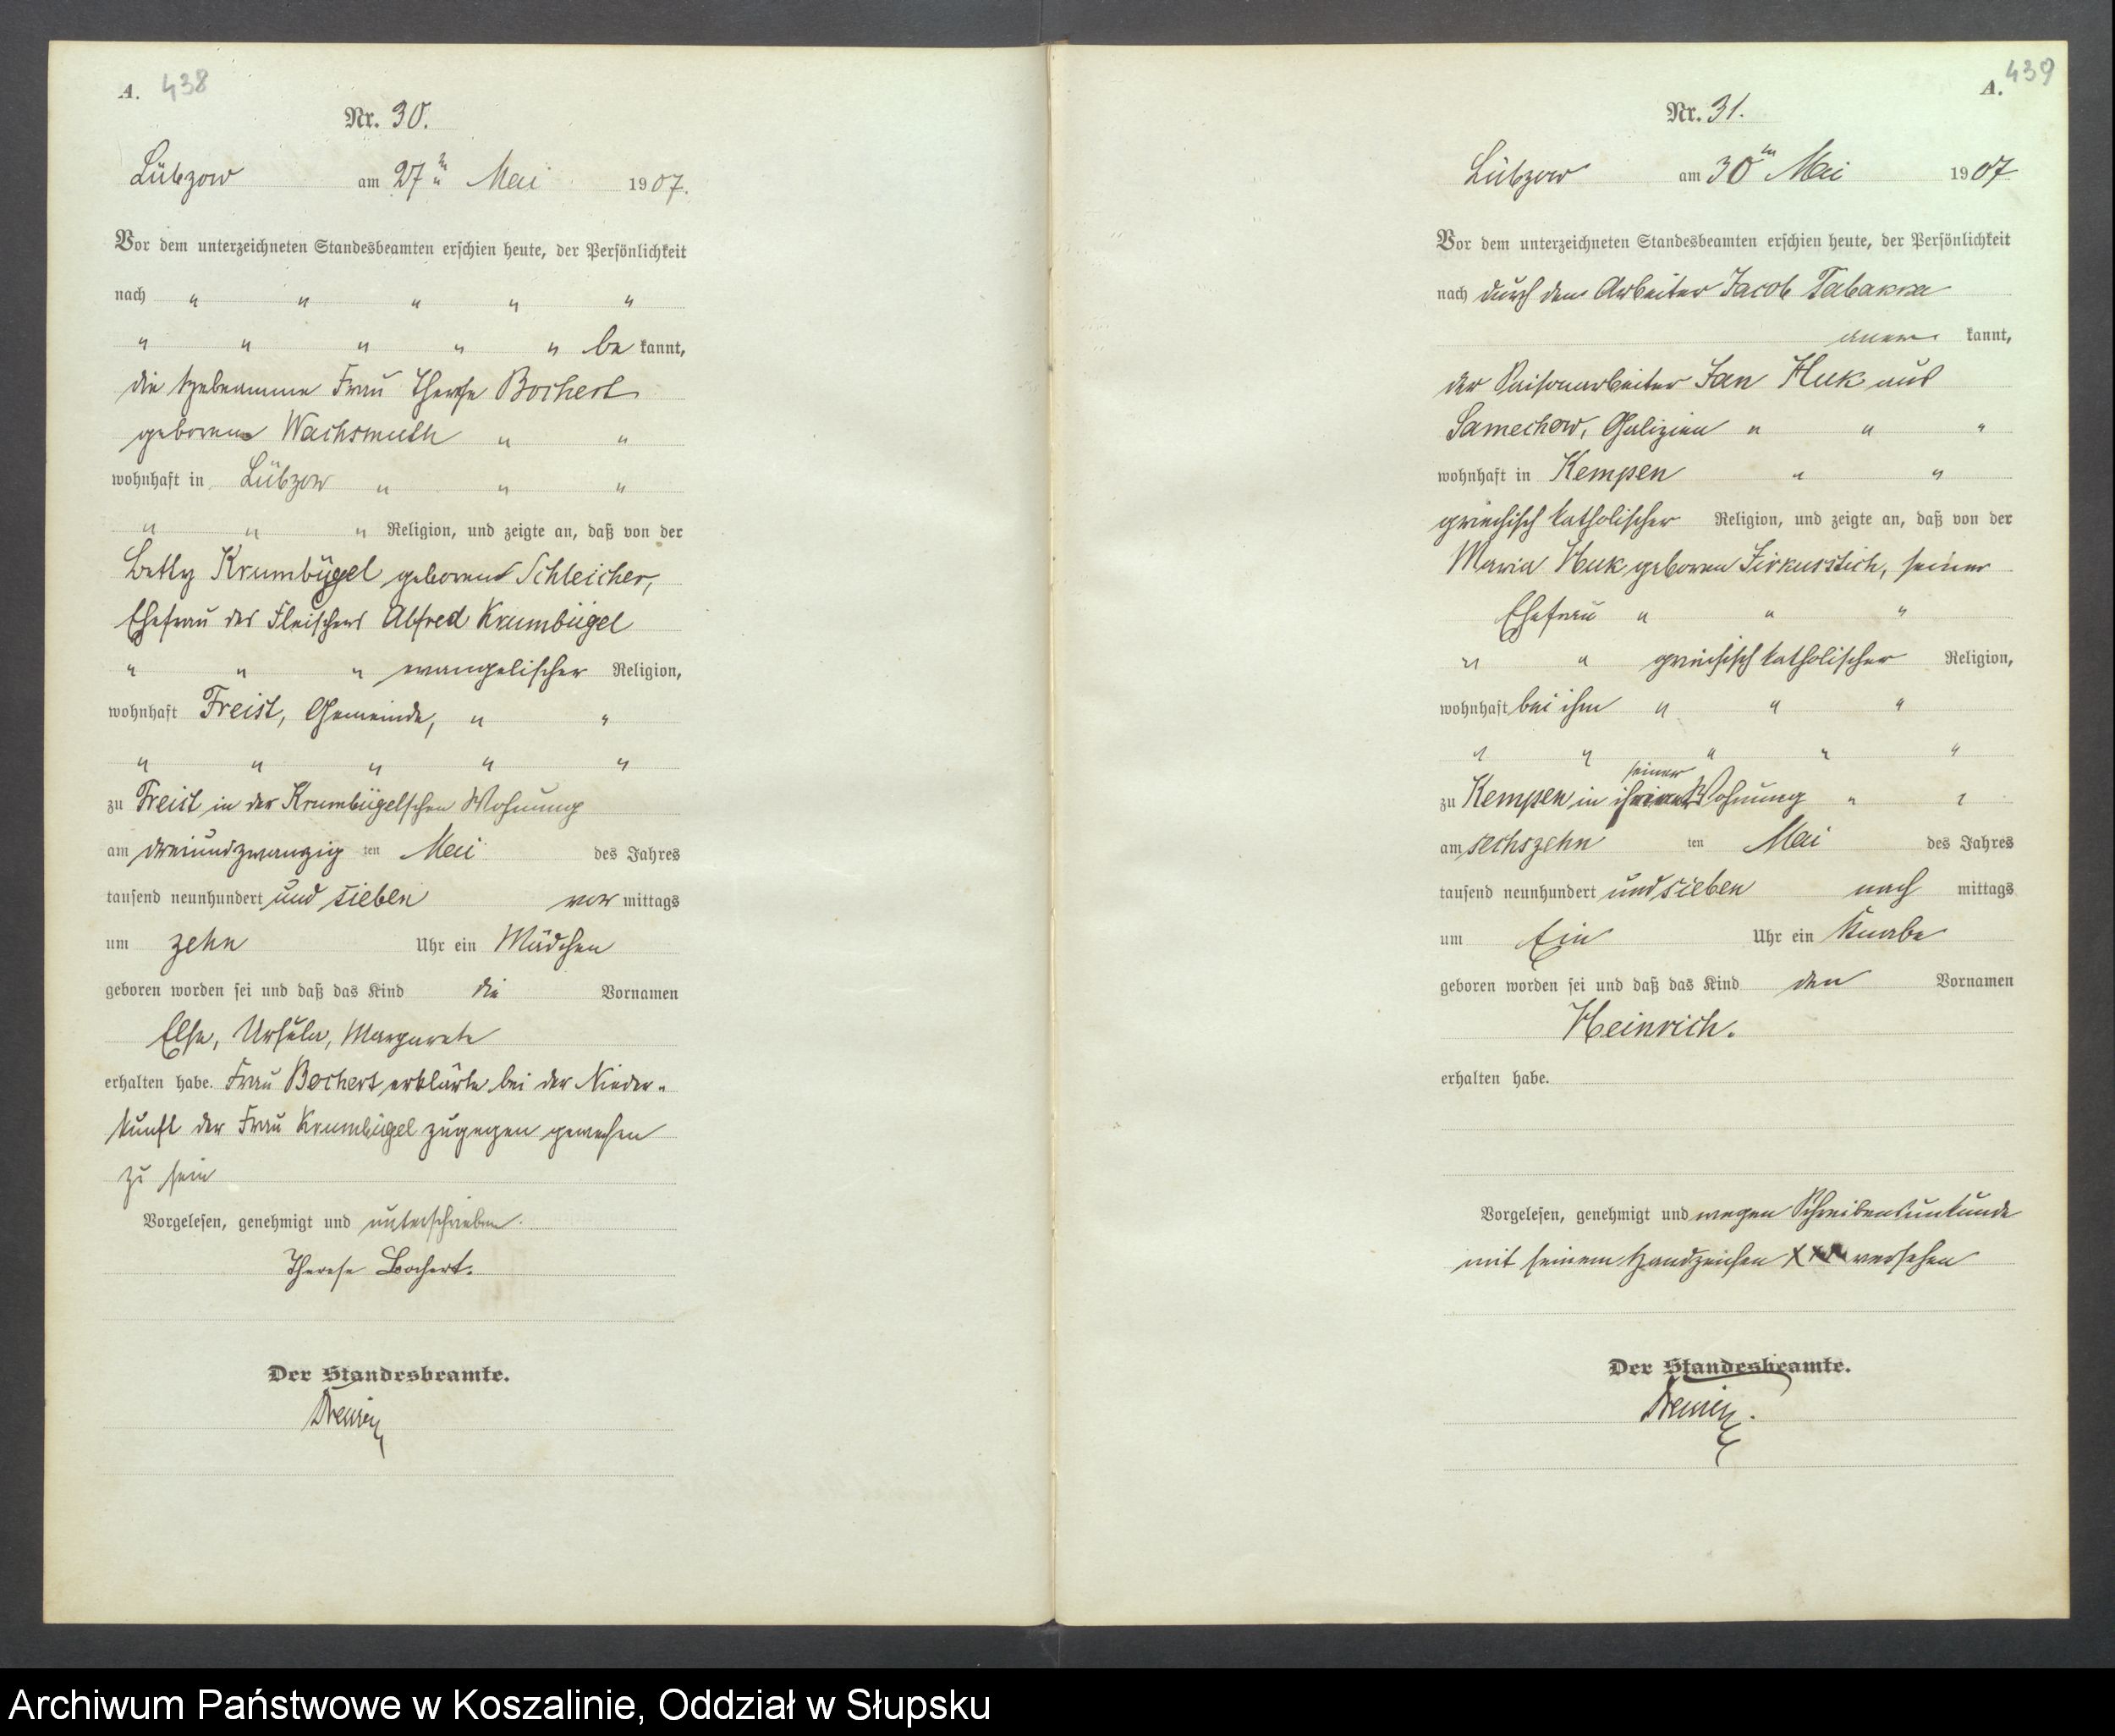 A. 438
Nr. 30.
Lübzow am 27ten Mai 1907.
Vor dem unterzeichneten Standesbeamten erschien heute, der Persönlichkeit
nach " " " " "
" " " " " be kannt,
die Hebeamme Frau Therese Bochert
geborene Wachsmuth " "
wohnhaft in Lübzow " " "
" " " Religion, und zeigte an, daß von der
Betty Krumbügel geborene Schleicher,
Ehefrau des Fleischers Alfred Krumbügel
" " " evangelischer Religion,
wohnhaft Freist, Gemeinde, " "
" " " " "
zu Freist in der Krumbügelschen Wohnung
am dreiundzwanzig ten Mai des Jahres
tausend neunhundert und sieben vor mittags
um zehn Uhr ein Mädchen
geboren worden sei und daß das Kind die Vornamen
Elsa, Ursula, Margarete
erhalten habe. Frau Bochert erklärte bei der Nieder-
kunft der Frau Krumbügel zugegen gewesen
zu sein
Vorgelesen, genehmigt und unterschrieben.
Therese Bochert.
Der Standesbeamte.
A. 439
Nr. 31.
Lübzow am 30ten Mai 1907
Vor dem unterzeichneten Standesbeamten erschien heute, der Persönlichkeit
nach durch den Arbeiter Jacob Tabakka
aner kannt,
der Saisonarbeiter Jan Huk aus
Samechow, Galizien " " "
wohnhaft in Kempen " "
griechisch katholischer Religion, und zeigte an, daß von der
Maria Huk geboren Zirkusstich, seiner
Ehefrau " " "
" " griechisch katholischer Religion,
wohnhaft bei ihm " " "
" " " " "
seiner
zu Kempen in Wohnung " "
am sechszehn ten Mai des Jahres
tausend neunhundert und sieben nach mittags
um Ein Uhr ein Knabe
geboren worden sei und daß das Kind den Vornamen
Heinrich.
erhalten habe.
Vorgelesen, genehmigt und wegen Schreibensunkunde
mit seinem Handzeichen XXX versehen
Der Standesbeamte.
Archiwum Państwowe w Koszalinie, Oddział w Słupsku